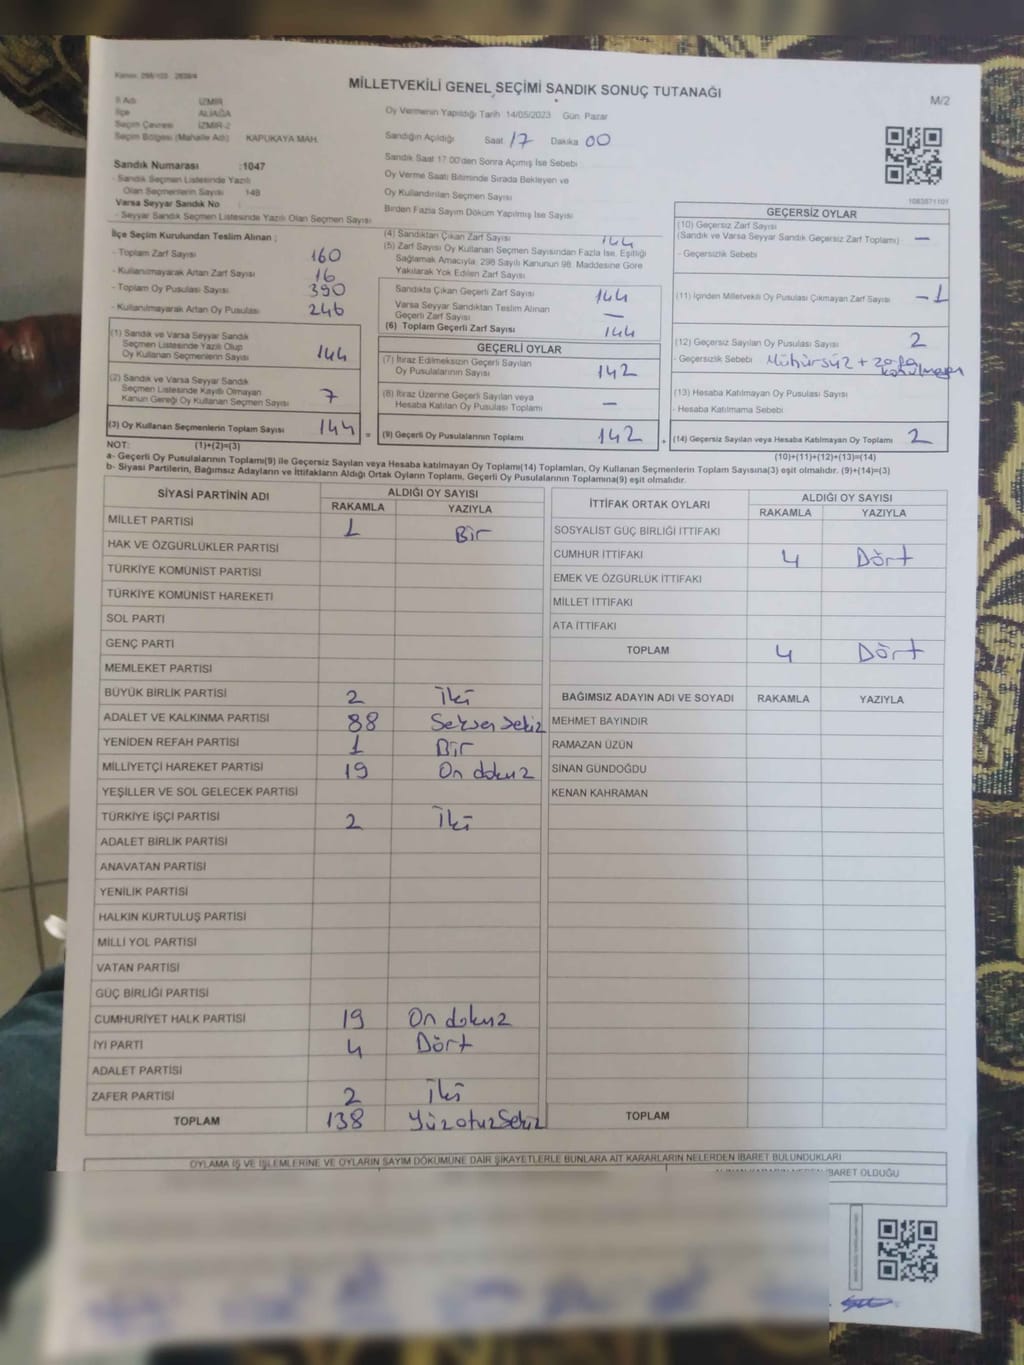 Kanun: 298/103 2839/4
MİLLETVEKİLİ GENEL SEÇİMİ SANDIK SONUÇ TUTANAĞI
M/2
İl Adı İZMİR
İlçe ALİAĞA
Seçim Çevresi İZMİR-2
Seçim Bölgesi (Mahalle Adı) KAPUKAYA MAH.
Sandık Numarası :1047
- Sandık Seçmen Listesinde Yazılı
Olan Seçmenlerin Sayısı 148
Varsa Seyyar Sandık No
- Seyyar Sandık Seçmen Listesinde Yazılı Olan Seçmen Sayısı
Oy Vermenin Yapıldığı Tarih 14/05/2023 Gün Pazar
Sandığın Açıldığı Saat 17 Dakika 00
Sandık Saat 17.00'den Sonra Açımış İse Sebebi
Oy Verme Saati Bitiminde Sırada Bekleyen ve
Oy Kullandırılan Seçmen Sayısı
Birden Fazla Sayım Döküm Yapılmış İse Sayısı
1083871101
İlçe Seçim Kurulundan Teslim Alınan ;
- Toplam Zarf Sayısı 160
- Kullanılmayarak Artan Zarf Sayısı 16
- Toplam Oy Pusulası Sayısı 390
- Kullanılmayarak Artan Oy Pusulası 246
(1) Sandık ve Varsa Seyyar Sandık
Seçmen Listesinde Yazılı Olup
Oy Kullanan Seçmenlerin Sayısı 144
(2) Sandık ve Varsa Seyyar Sandık
Seçmen Listesinde Kayıtlı Olmayan
Kanun Gereği Oy Kullanan Seçmen Sayısı 7
(3) Oy Kullanan Seçmenlerin Toplam Sayısı 144 =
NOT: (1)+(2)=(3)
(4) Sandıktan Çıkan Zarf Sayısı 144
(5) Zarf Sayısı Oy Kullanan Seçmen Sayısından Fazla İse, Eşitliği
Sağlamak Amacıyla; 298 Sayılı Kanunun 98. Maddesine Göre
Yakılarak Yok Edilen Zarf Sayısı
Sandıkta Çıkan Geçerli Zarf Sayısı 144
Varsa Seyyar Sandıktan Teslim Alınan
Geçerli Zarf Sayısı —
(6) Toplam Geçerli Zarf Sayısı 144
GEÇERLİ OYLAR
(7) İtiraz Edilmeksizin Geçerli Sayılan
Oy Pusulalarının Sayısı 142
(8) İtiraz Üzerine Geçerli Sayılan veya
Hesaba Katılan Oy Pusulası Toplamı —
(9) Geçerli Oy Pusulalarının Toplamı 142 +
GEÇERSİZ OYLAR
(10) Geçersiz Zarf Sayısı
(Sandık ve Varsa Seyyar Sandık Geçersiz Zarf Toplamı) —
- Geçersizlik Sebebi
(11) İçinden Milletvekili Oy Pusulası Çıkmayan Zarf Sayısı -1
(12) Geçersiz Sayılan Oy Pusulası Sayısı 2
- Geçersizlik Sebebi Mühürsüz + zarfa
konulmayan
(13) Hesaba Katılmayan Oy Pusulası Sayısı
- Hesaba Katılmama Sebebi
(14) Geçersiz Sayılan veya Hesaba Katılmayan Oy Toplamı 2
(10)+(11)+(12)+(13)=(14)
a- Geçerli Oy Pusulalarının Toplamı(9) ile Geçersiz Sayılan veya Hesaba katılmayan Oy Toplamı(14) Toplamları, Oy Kullanan Seçmenlerin Toplam Sayısına(3) eşit olmalıdır. (9)+(14)=(3)
b- Siyasi Partilerin, Bağımsız Adayların ve İttifakların Aldığı Ortak Oyların Toplamı, Geçerli Oy Pusulalarının Toplamına(9) eşit olmalıdır.
SİYASİ PARTİNİN ADI ALDIĞI OY SAYISI
RAKAMLA YAZIYLA
MİLLET PARTİSİ 1 Bir
HAK VE ÖZGÜRLÜKLER PARTİSİ
TÜRKİYE KOMÜNİST PARTİSİ
TÜRKİYE KOMÜNİST HAREKETİ
SOL PARTİ
GENÇ PARTİ
MEMLEKET PARTİSİ
BÜYÜK BİRLİK PARTİSİ 2 İki
ADALET VE KALKINMA PARTİSİ 88 Seksen sekiz
YENİDEN REFAH PARTİSİ 1 Bir
MİLLİYETÇİ HAREKET PARTİSİ 19 On dokuz
YEŞİLLER VE SOL GELECEK PARTİSİ
TÜRKİYE İŞÇİ PARTİSİ 2 İki
ADALET BİRLİK PARTİSİ
ANAVATAN PARTİSİ
YENİLİK PARTİSİ
HALKIN KURTULUŞ PARTİSİ
MİLLİ YOL PARTİSİ
VATAN PARTİSİ
GÜÇ BİRLİĞİ PARTİSİ
CUMHURİYET HALK PARTİSİ 19 On dokuz
İYİ PARTİ 4 Dört
ADALET PARTİSİ
ZAFER PARTİSİ 2 İki
TOPLAM 138 Yüzotuzsekiz
İTTİFAK ORTAK OYLARI ALDIĞI OY SAYISI
RAKAMLA YAZIYLA
SOSYALİST GÜÇ BİRLİĞİ İTTİFAKI
CUMHUR İTTİFAKI 4 Dört
EMEK VE ÖZGÜRLÜK İTTİFAKI
MİLLET İTTİFAKI
ATA İTTİFAKI
TOPLAM 4 Dört
BAĞIMSIZ ADAYIN ADI VE SOYADI RAKAMLA YAZIYLA
MEHMET BAYINDIR
RAMAZAN ÜZÜN
SİNAN GÜNDOĞDU
KENAN KAHRAMAN
TOPLAM
OYLAMA İŞ VE İŞLEMLERİNE VE OYLARIN SAYIM DÖKÜMÜNE DAİR ŞİKAYETLERLE BUNLARA AİT KARARLARIN NELERDEN İBARET BULUNDUKLARI
İBARET OLDUĞU